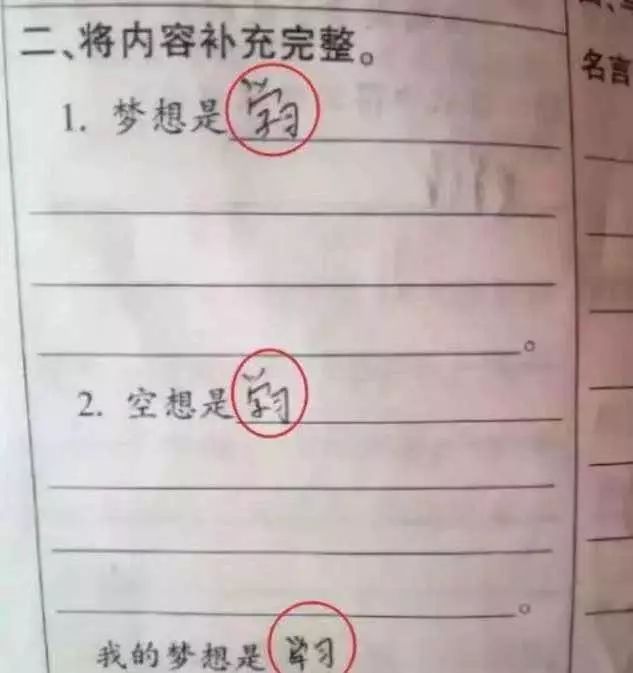 二、将内容补充完整。
1. 梦想是学习
。
2. 空想是学习
。
我的梦想是学习
名言